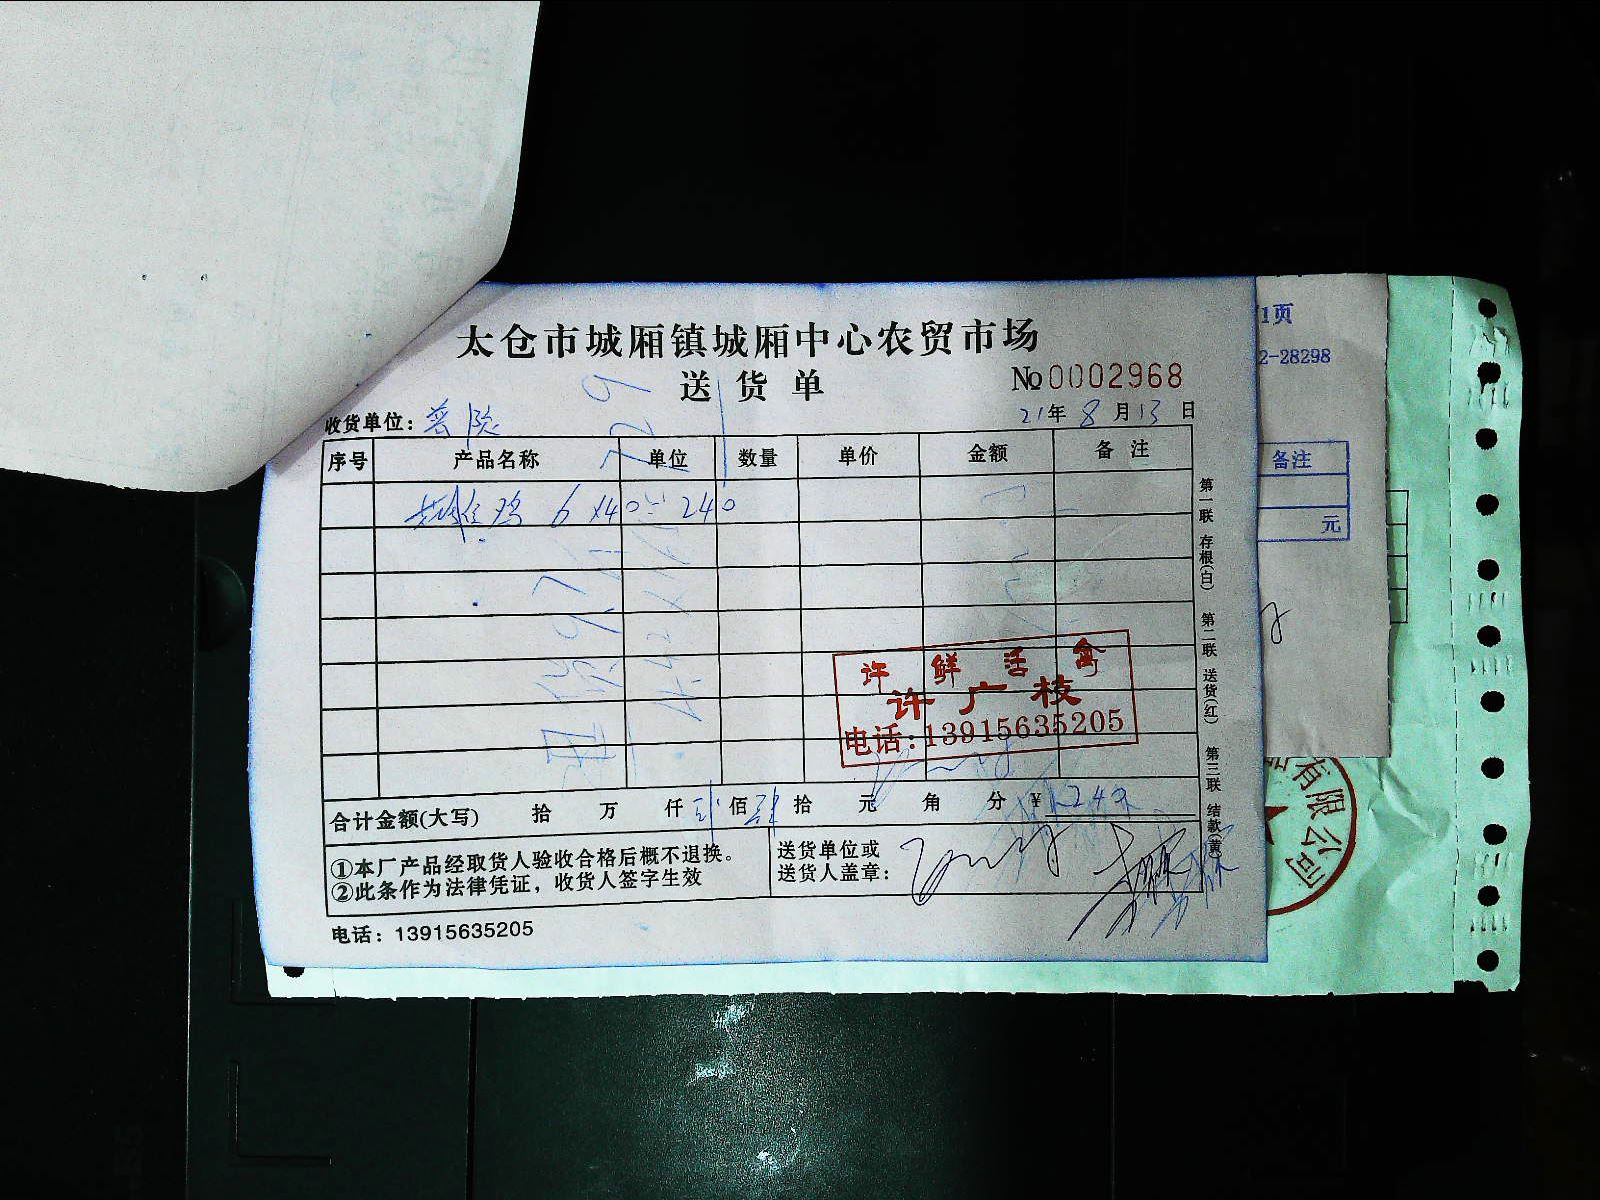 太仓市城厢镇城厢中心农贸市场
送货单
No 0002968
收货单位:
21年 8月13日
序号 产品名称 单位 数量 单价 金额 备注
鸡 6×40=240
许鲜活禽
许广枝
电话:13915635205
合计金额(大写) 拾 万 仟 贰佰 肆拾 元 角 分 ¥ 240
①本厂产品经取货人验收合格后概不退换。
②此条作为法律凭证，收货人签字生效
送货单位或
送货人盖章:
电话: 13915635205
第一联 存根(白) 第二联 送货(红) 第三联 结款(黄)
1页
2-28298
备注
元
有限公司